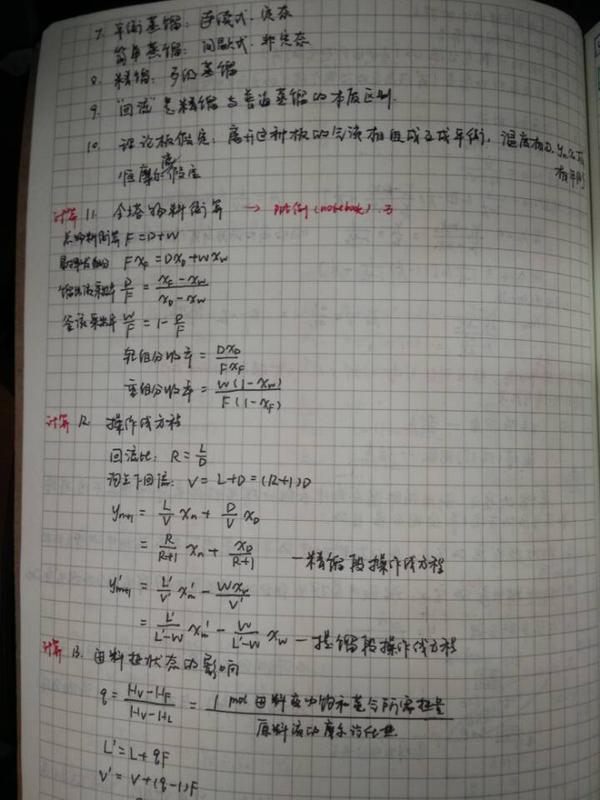 7. 平衡蒸馏：连续式. 定态
简单蒸馏：间歇式. 非定态
8. 精馏：多级蒸馏
9. "回流"是精馏与普通蒸馏的本质区别.
10. 理论板假定：离开这种板的气液相组成互成平衡，温度相等, yn, xn
成平衡
恒摩尔流假定
计算 11. 全塔物料衡算 → (notebook)
总物料衡算 F = D+W
FxF = DxD + WxW
馏出液采出率 D/F = (xF-xW)/(xD-xW)
釜液采出率 W/F = 1-D/F
轻组分收率 = DxD/FxF
重组分收率 = W(1-xW)/F(1-xF)
计算 12. 操作线方程
回流比: R = L/D
V = L+D = (R+1)D
yn+1 = L/V xn + D/V xD
= R/R+1 xn + xD/R+1 —精馏段操作线方程
y'n+1 = L'/V' x'n - WxW/V'
= L'/L'-W x'n - W/L'-W xW —提馏段操作线方程
计算 13. 进料热状态的影响
q = (HV-HF)/(HV-HL) = 1 mol 进料变为饱和蒸气所需热量/原料液的摩尔汽化热
L' = L+qF
V' = V+(q-1)F